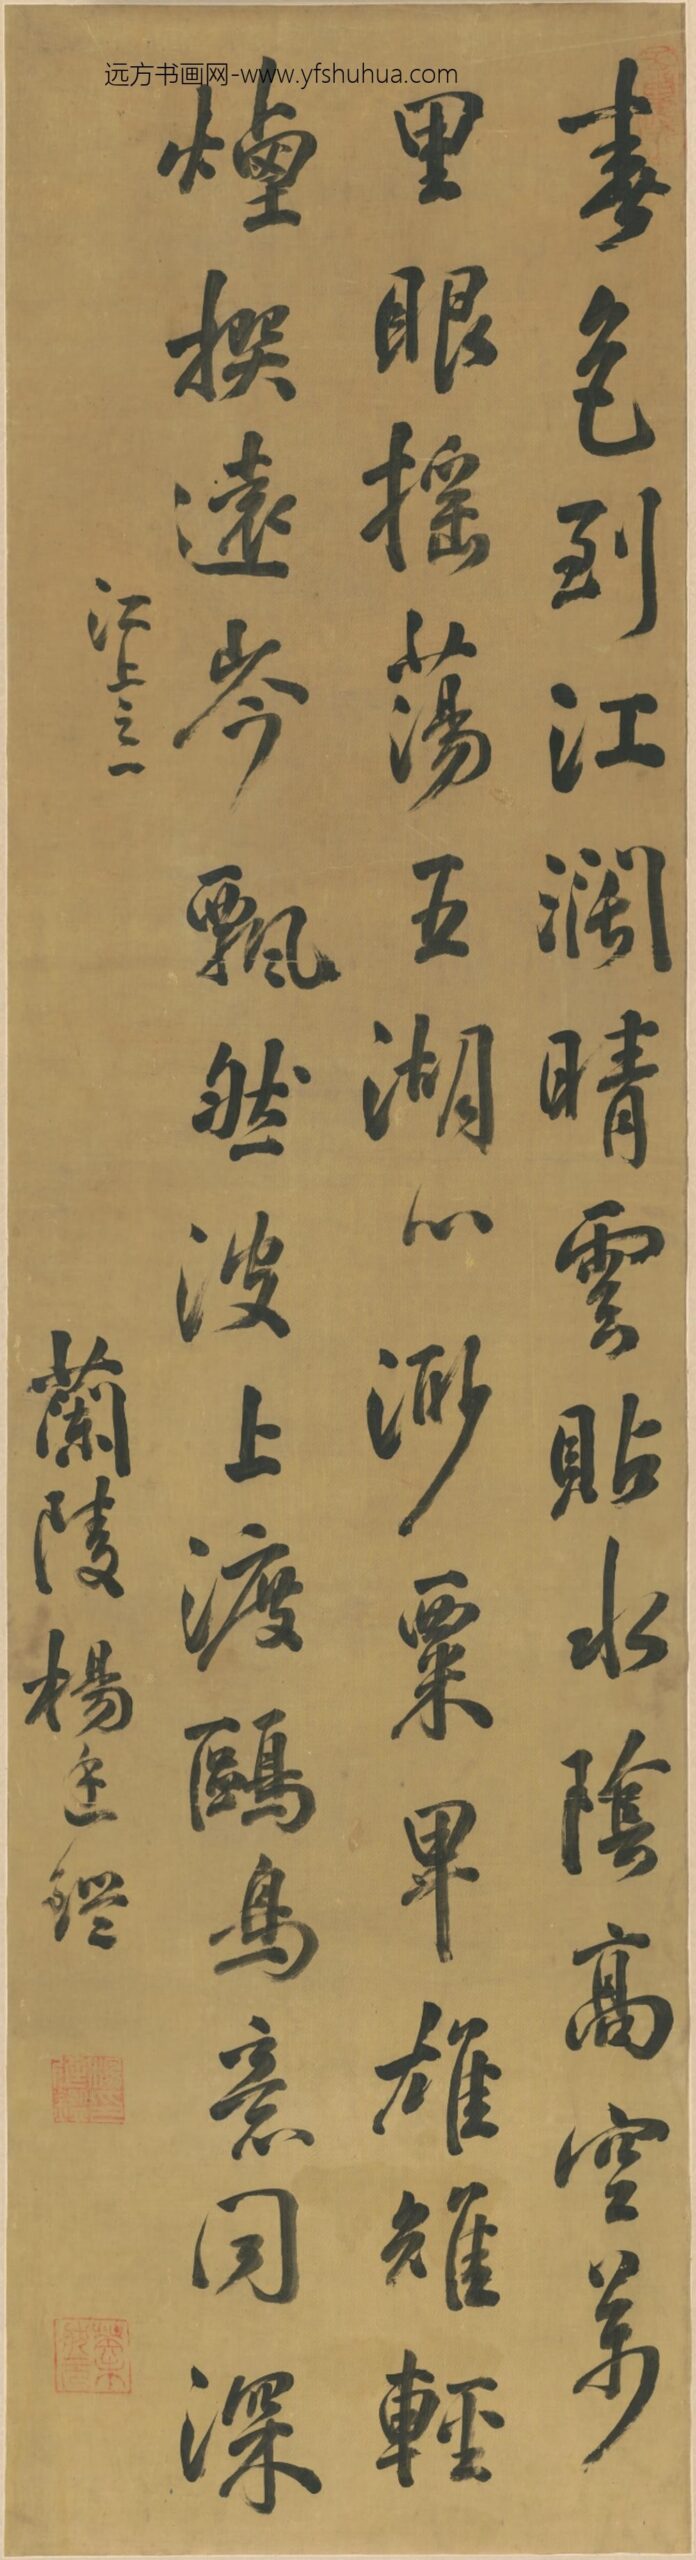 远方书画网-www.yfshuhua.com
春色到江濶晴雲貼水陰高空萬
里眼摇蕩五湖心渺粟畢雄雉輕
煙撰遠岑飄然波上渡鷗鳥意同深
江上之一
蘭陵楊廷鑑